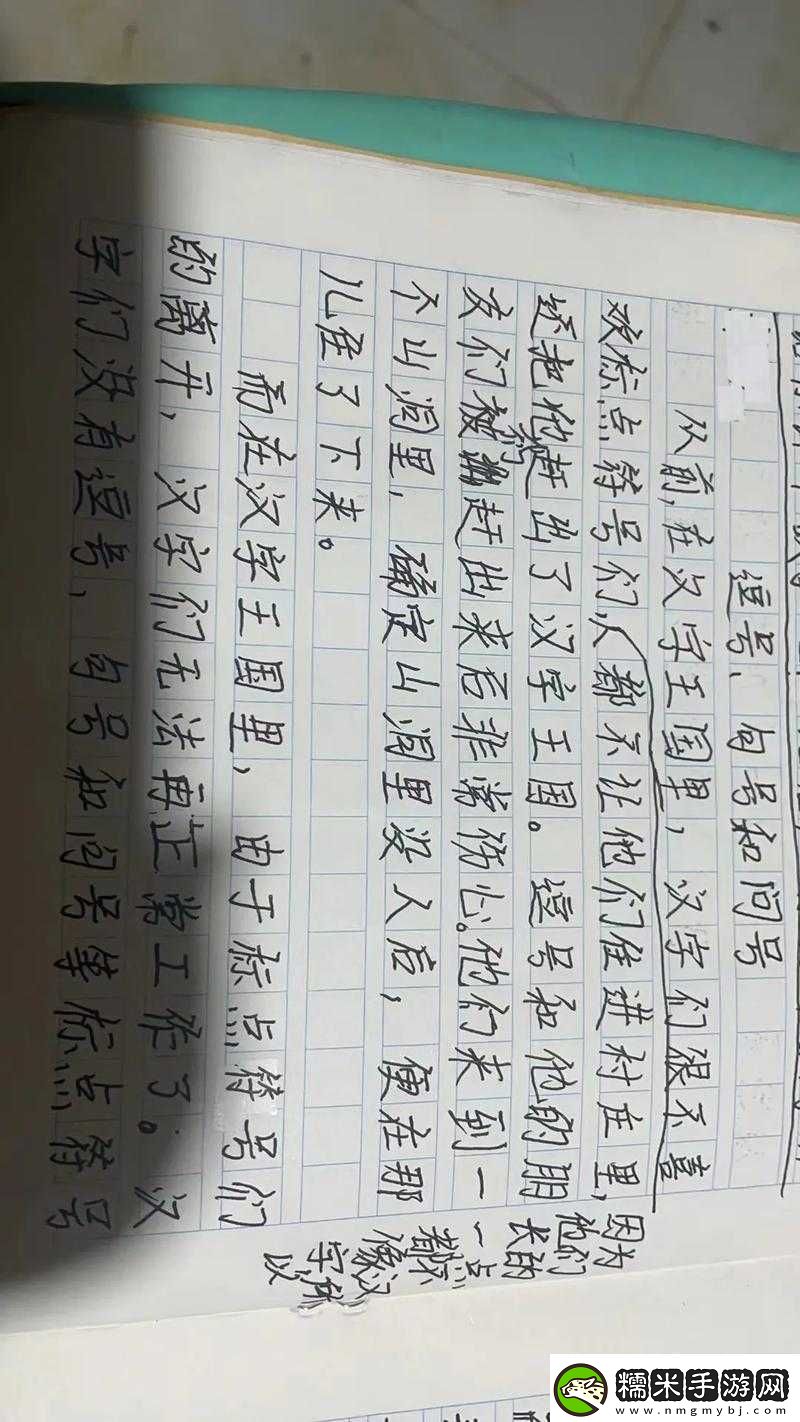 逗号、句号和问号
从前,在汉字王国里,汉字们很不喜
欢标点符号们,都不让他们住进村庄里,
因为他们长的一点都不像汉字,所以
还把他们赶出了汉字王国。逗号和他的朋
友们被赶出来后非常伤心。他们来到一
个山洞里,确定山洞里没人后,便在那
儿住了下来。
而在汉字王国里,由于标点符号们
的离开,汉字们无法再正常工作了。汉
字们没有逗号、句号和问号等标点符号
糯米手游网
www.nmgmybj.com